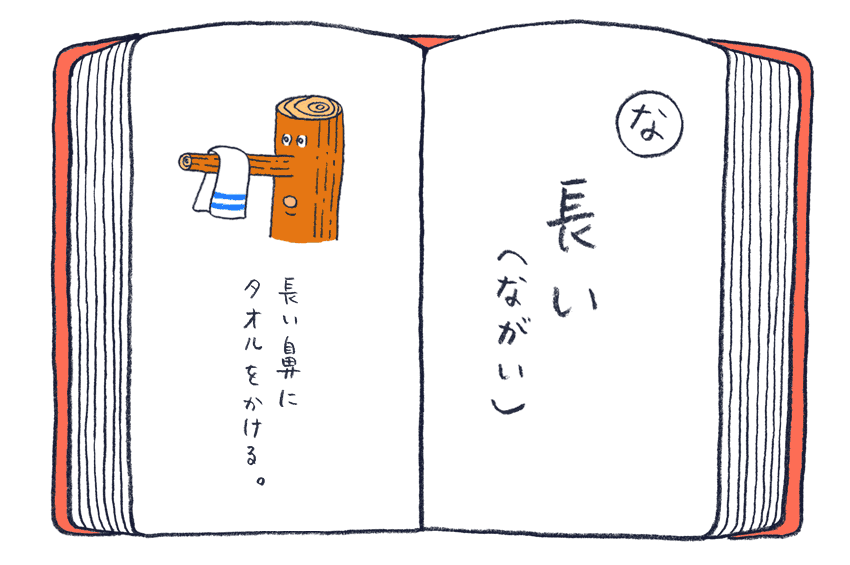 な
長い
(ながい)
長い鼻に
タオルをかける。